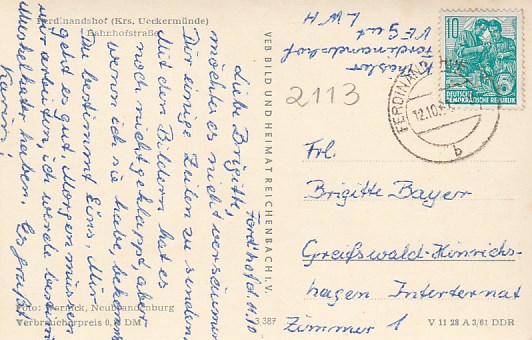 Ferdinandshof (Krs. Ueckermünde)
Bahnhofstraße
Ferd'hof d. 11.10
Liebe Brigitte,
möchte es nicht versäumen
Dir einige Zeilen zu senden.
Mit den Bildern hat es
noch nicht geklappt, aber
wenn ich sie habe, bekommst
Du bestimmt Eins. Mir
geht es gut. Morgen müssen
wir arbeiten, ich werde bestimmt
Muskelkater haben. Es grüßt
Karin!
Foto: Darnick, Neubrandenburg
Verbraucherpreis 0, DM
VEB BILD UND HEIMAT REICHENBACH I. V.
3 387
Ferdinandshof
VEGut
LWH
2113
10
DEUTSCHE
DEMOKRATISCHE REPUBLIK
FERDINANDSHOF
12.10.
b
Frl.
Brigitte Bayer
Greifswald-Hinrichs-
hagen Internat
Zimmer 1
V 11 28 A 3/61 DDR